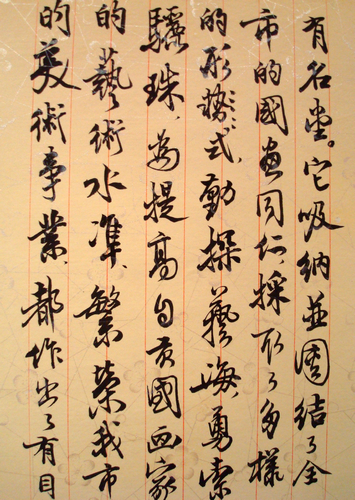 有名堂。它吸納並團結了全
市的國畫同仁,採取了多樣
的形勢式,勤探藝海,勇索
驪珠,為提高自貢國画家
的藝術水準、繁榮我市
的美術事業、都作出了有目